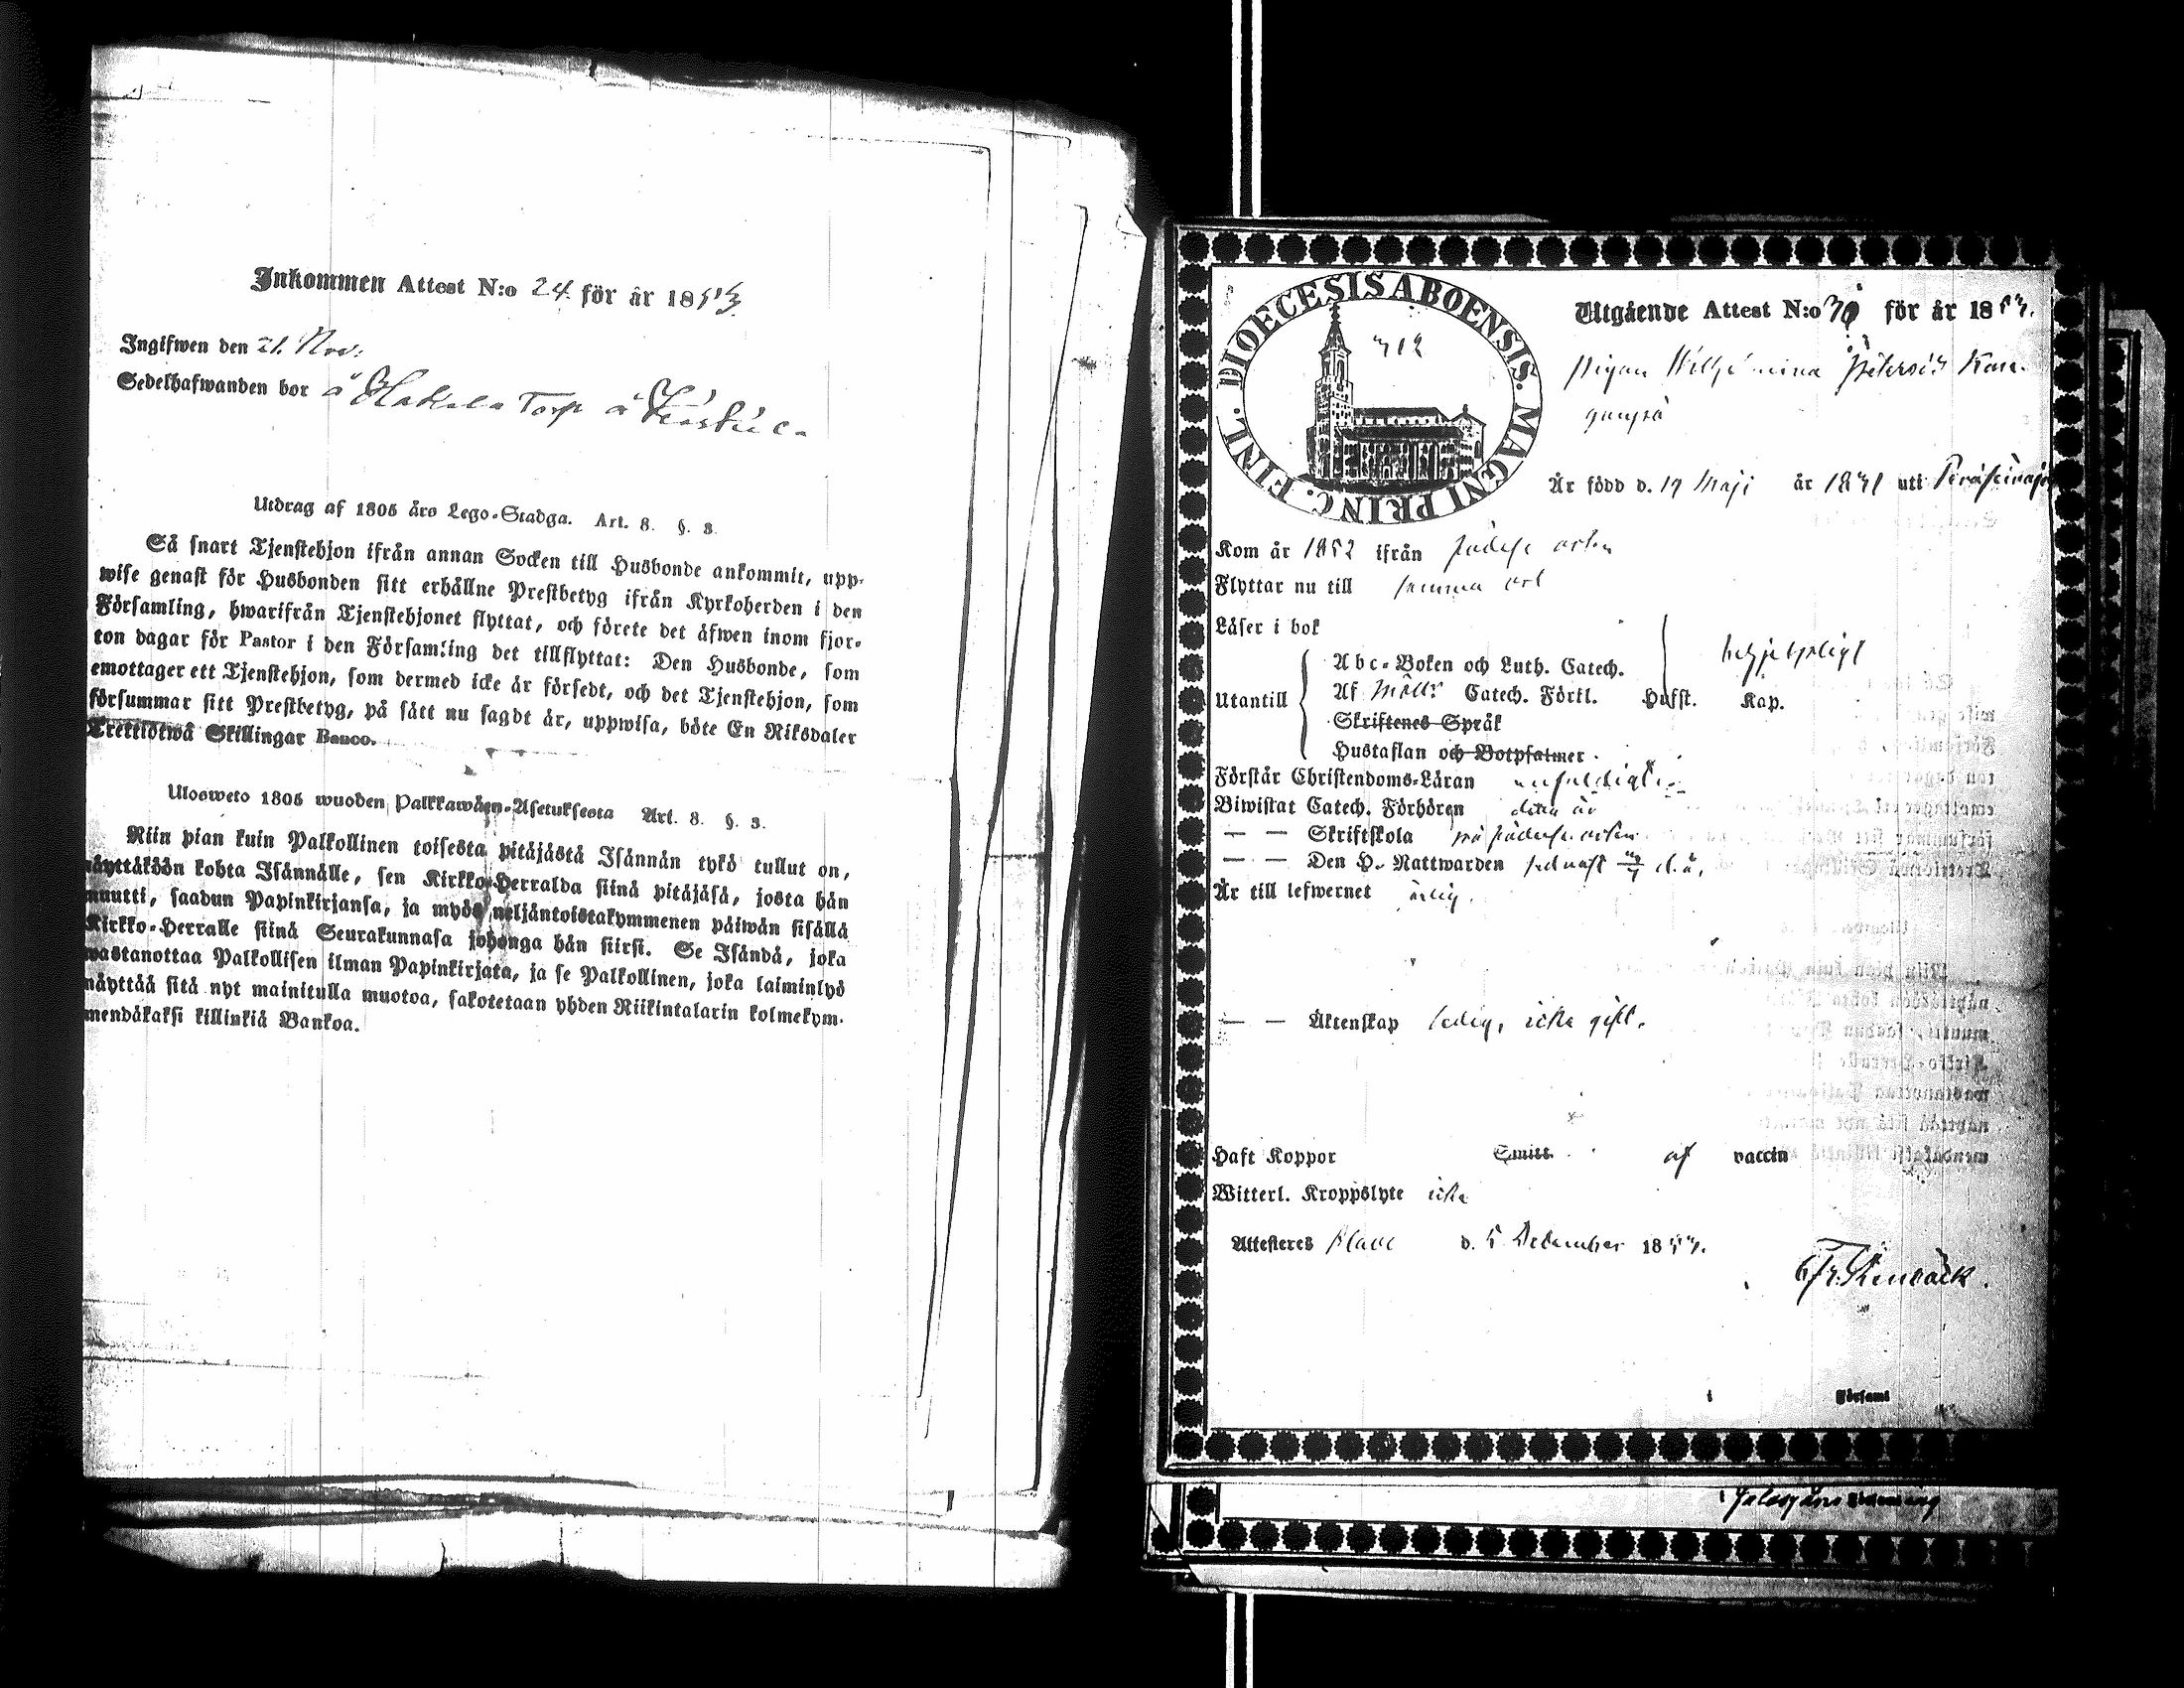 Inkommen Attest N:o 24 för år 1853
Ingifwen den 21. Nov.
Sedelhafwanden bor å Torp å
Utdrag af 1805 års Lego-Stadga. Art. 8. §. 3.
Så snart Tjenstehjon ifrån annan Socken till Husbonde ankommit, upp-
wise genast för Husbonden sitt erhållne Prestbetyg ifrån Kyrkoherden i den
Församling, hwarifrån Tjenstehjonet flyttat, och förete det äfwen inom fjor-
ton dagar för Pastor i den Församling det tillflyttat: Den Husbonde, som
emottager ett Tjenstehjon, som dermed icke är försedt, och det Tjenstehjon, som
försummar sitt Prestbetyg, på sätt nu sagdt är, uppwisa, böte En Riksdaler
Trettiotwå Skillingar Banco.
Ulosweto 1805 wuoden Palkkawäen-Asetuksesta Art. 8. §. 3.
Niin pian kuin Palkollinen toisesta pitäjästä Isännän tykö tullut on,
näyttäköön kohta Isännälle, sen Kirkko-Herralda siinä pitäjäsä, josta hän
muutti, saadun Papinkirjansa, ja myös neljäntoistakymmenen päiwän sisällä
Kirkko-Herralle siinä Seurakunnasa johonga hän siirsi. Se Isändä, joka
wastanottaa Palkollisen ilman Papinkirjata, ja se Palkollinen, joka laiminlyö
näyttää sitä nyt mainitulla muotoa, sakotetaan yhden Riikintalarin kolmekym-
mendäkaksi killinkiä Bankoa.
DIOECESIS ABOENSIS. MAGNI PRINC. FINL.
312
Utgående Attest N:o för år 1853.
Pigan Wilhelmina
Är född d. 19 Maji år 1831 uti Peräseinäjo
Kom år 1852 ifrån födelse orten
Flyttar nu till samma ort
Läser i bok
Utantill
Abc-Boken och Luth. Catech.
Af Möll: Catech. Förkl. Hufst. Kap.
Skriftenes Språk
Hustaflan och Botpsalmer
Förstår Christendoms-Läran enfaldigt
Biwistat Catech. Förhören detta år
— — Skriftskola på födelseorten
— — Den H. Nattwarden sednast d. å.
Är till lefwernet ärlig.
— — Äktenskap ledig, icke gift.
Haft Koppor Smitt af vaccin
Witterl. Kroppslyte icke
Attesteras d. 5 December 1853.
i Församl